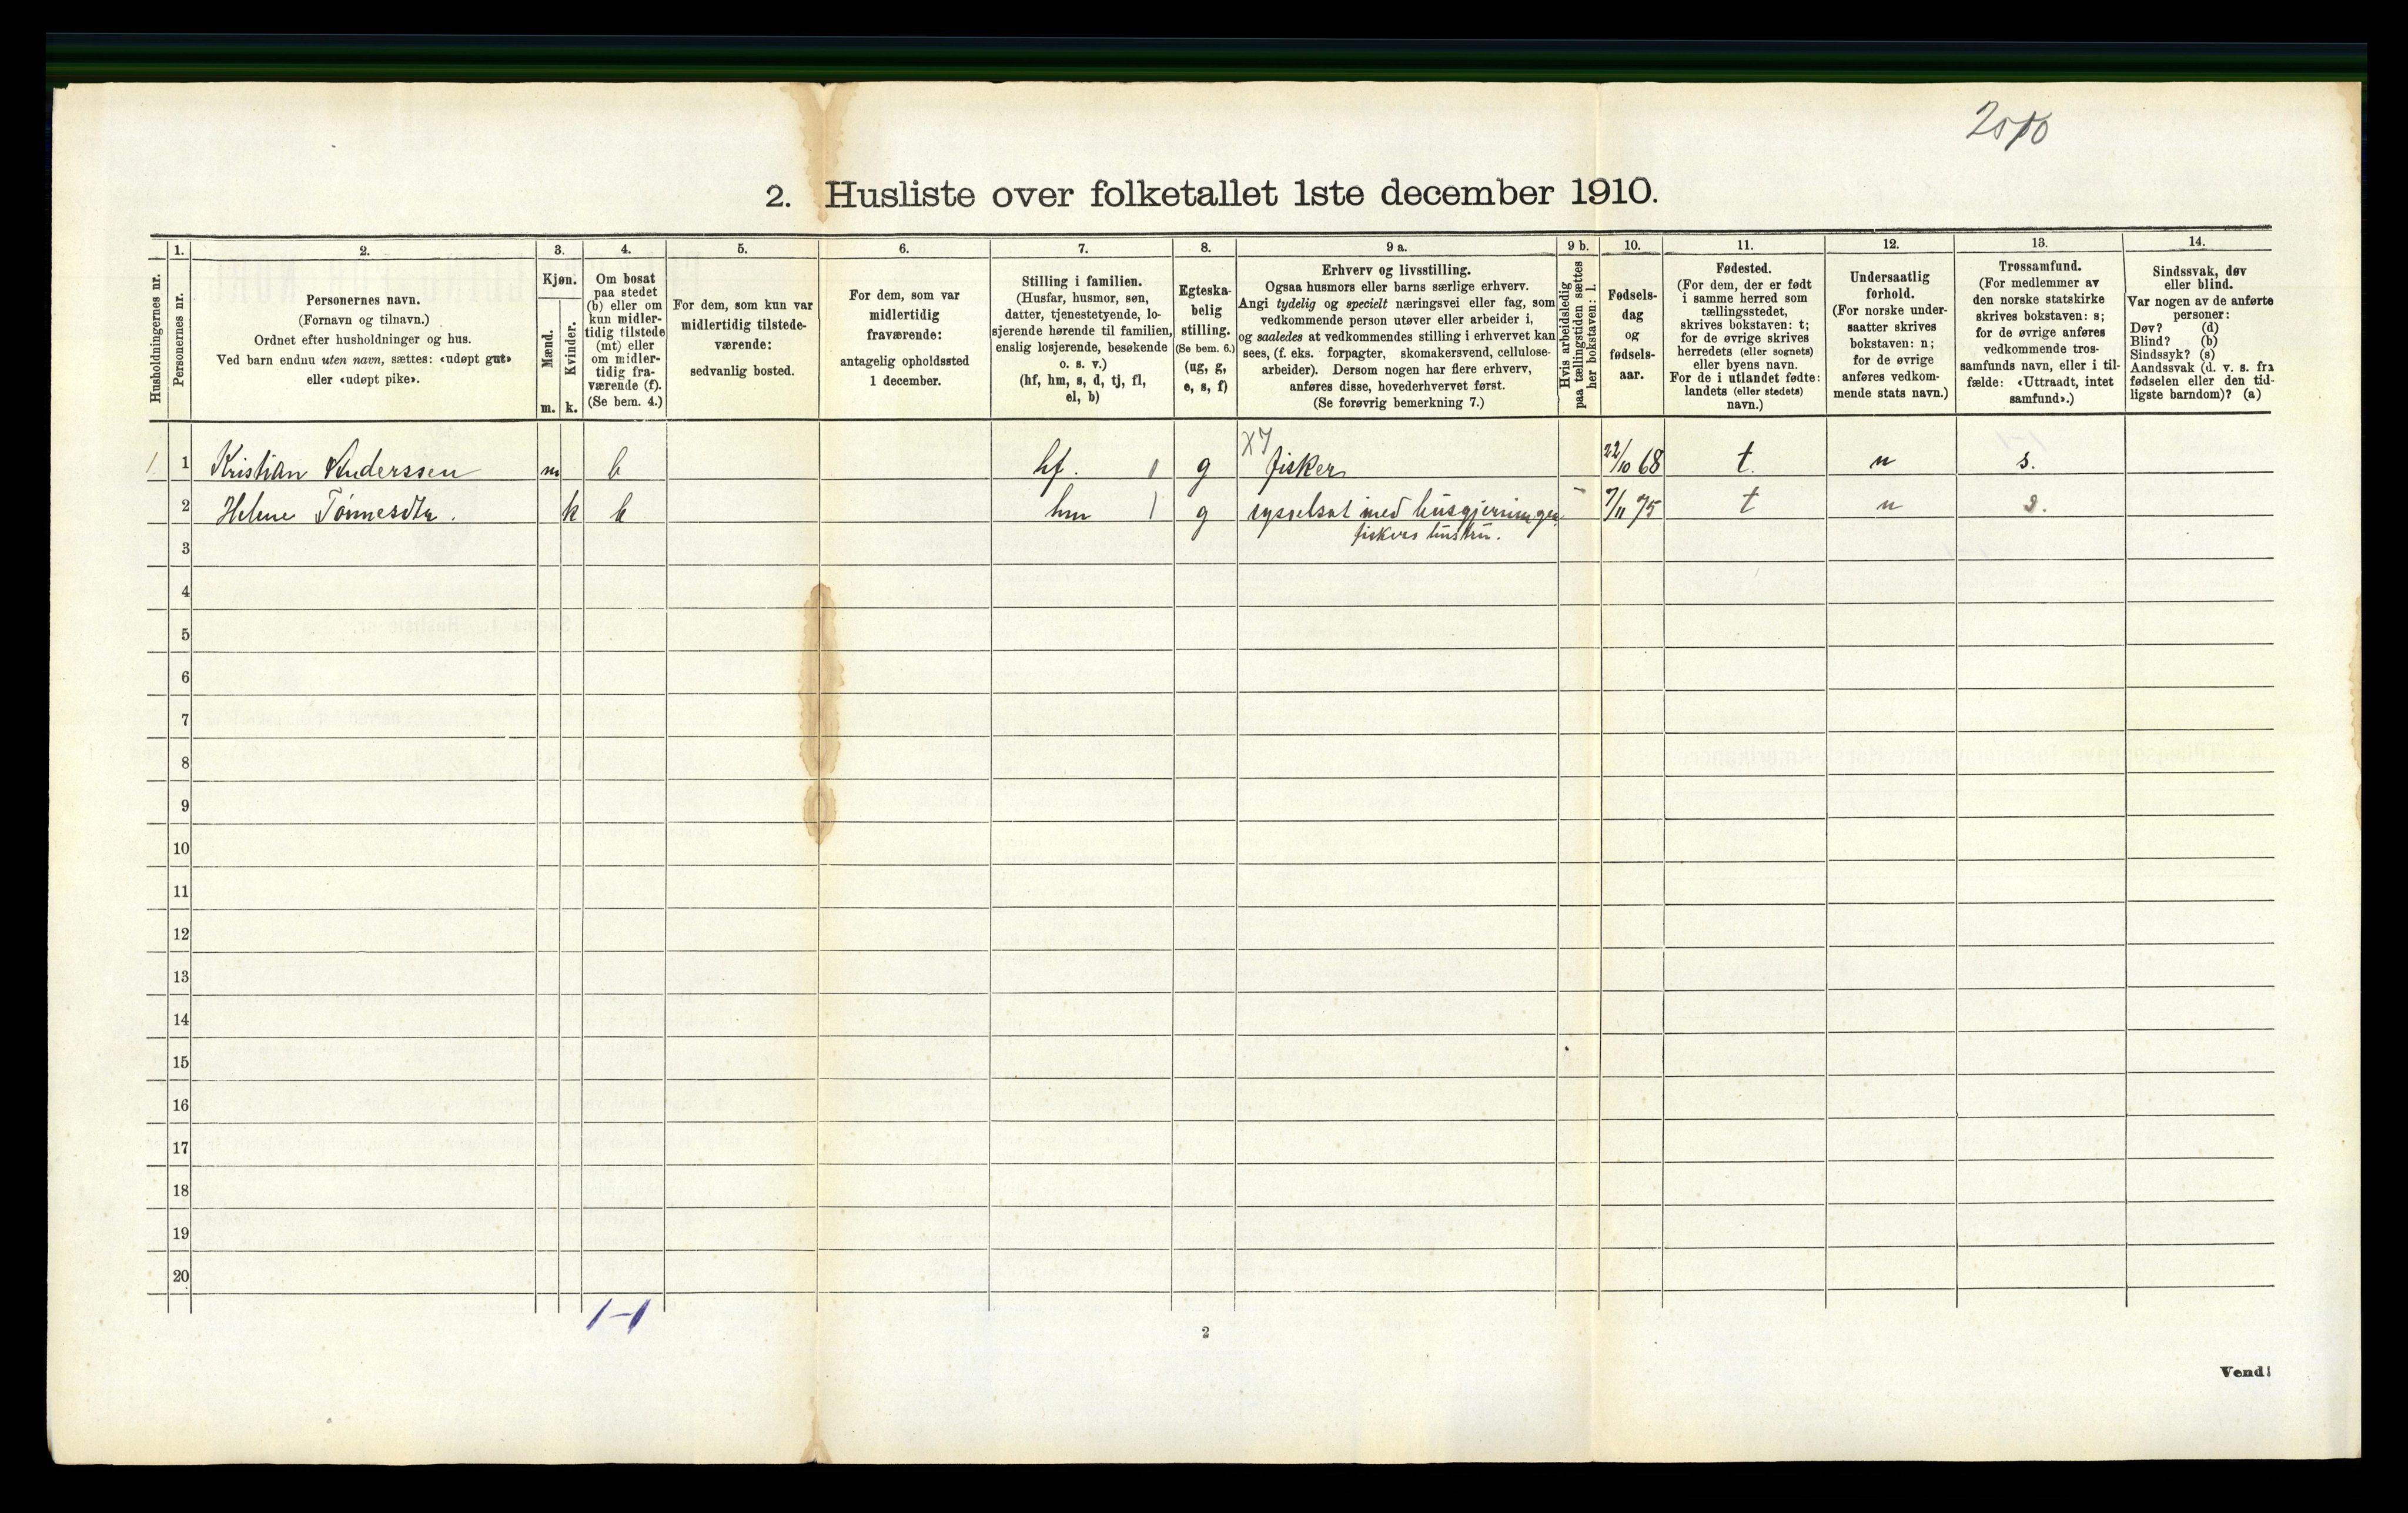 2. Husliste over folketallet 1ste december 1910.
Husholdningernes nr.
1.
Personernes nr.
2.
Personernes navn.
(Fornavn og tilnavn.)
Ordnet efter husholdninger og hus.
Ved barn endnu uten navn, sættes: «udøpt gut»
eller «udøpt pike».
3.
Kjøn.
Mænd.
Kvinder.
m. k.
4.
Om bosat
paa stedet
(b) eller om
kun midler-
tidig tilstede
(mt) eller
om midler-
tidig fra-
værende (f).
(Se bem. 4.)
5.
For dem, som kun var
midlertidig tilstede-
værende:
sedvanlig bosted.
6.
For dem, som var
midlertidig
fraværende:
antagelig opholdssted
1 december.
7.
Stilling i familien.
(Husfar, husmor, søn,
datter, tjenestetyende, lo-
sjerende hørende til familien,
enslig losjerende, besøkende
o. s. v.)
(hf, hm, s, d, tj, fl,
el, b)
8.
Egteska-
belig
stilling.
(Se bem. 6.)
(ug, g,
e, s, f)
9 a.
Erhverv og livsstilling.
Ogsaa husmors eller barns særlige erhverv.
Angi tydelig og specielt næringsvei eller fag, som
vedkommende person utøver eller arbeider i,
og saaledes at vedkommendes stilling i erhvervet kan
sees, (f. eks. forpagter, skomakersvend, cellulose-
arbeider). Dersom nogen har flere erhverv,
anføres disse, hovederhvervet først.
(Se forøvrig bemerkning 7.)
9 b.
Hvis arbeidsledig
paa tællingstiden sættes
her bokstaven: l.
10.
Fødsels-
dag
og
fødsels-
aar.
11.
Fødested.
(For dem, der er født
i samme herred som
tællingsstedet,
skrives bokstaven: t;
for de øvrige skrives
herredets (eller sognets)
eller byens navn.
For de i utlandet fødte:
landets (eller stedets)
navn.)
12.
Undersaatlig
forhold.
(For norske under-
saatter skrives
bokstaven: n;
for de øvrige
anføres vedkom-
mende stats navn.)
13.
Trossamfund.
(For medlemmer av
den norske statskirke
skrives bokstaven: s;
for de øvrige anføres
vedkommende tros-
samfunds navn, eller i til-
fælde: «Uttraadt, intet
samfund».)
14.
Sindssvak, døv
eller blind.
Var nogen av de anførte
personer:
Døv? (d)
Blind? (b)
Sindssyk? (s)
Aandssvak (d. v. s. fra
fødselen eller den tid-
ligste barndom)? (a)
X7
1. 1 Kristian Anderssen m b hf. g fisker 22/10 68 t. n s.
2 Helene Tønnesdtr. k b hm g sysselsat med husgjerninger 7/11 75 t n s.
3 fiskers hustru.
4
5
6
7
8
9
10
11
12
13
14
15
16
17
18
19
20
1-1
2
Vend!